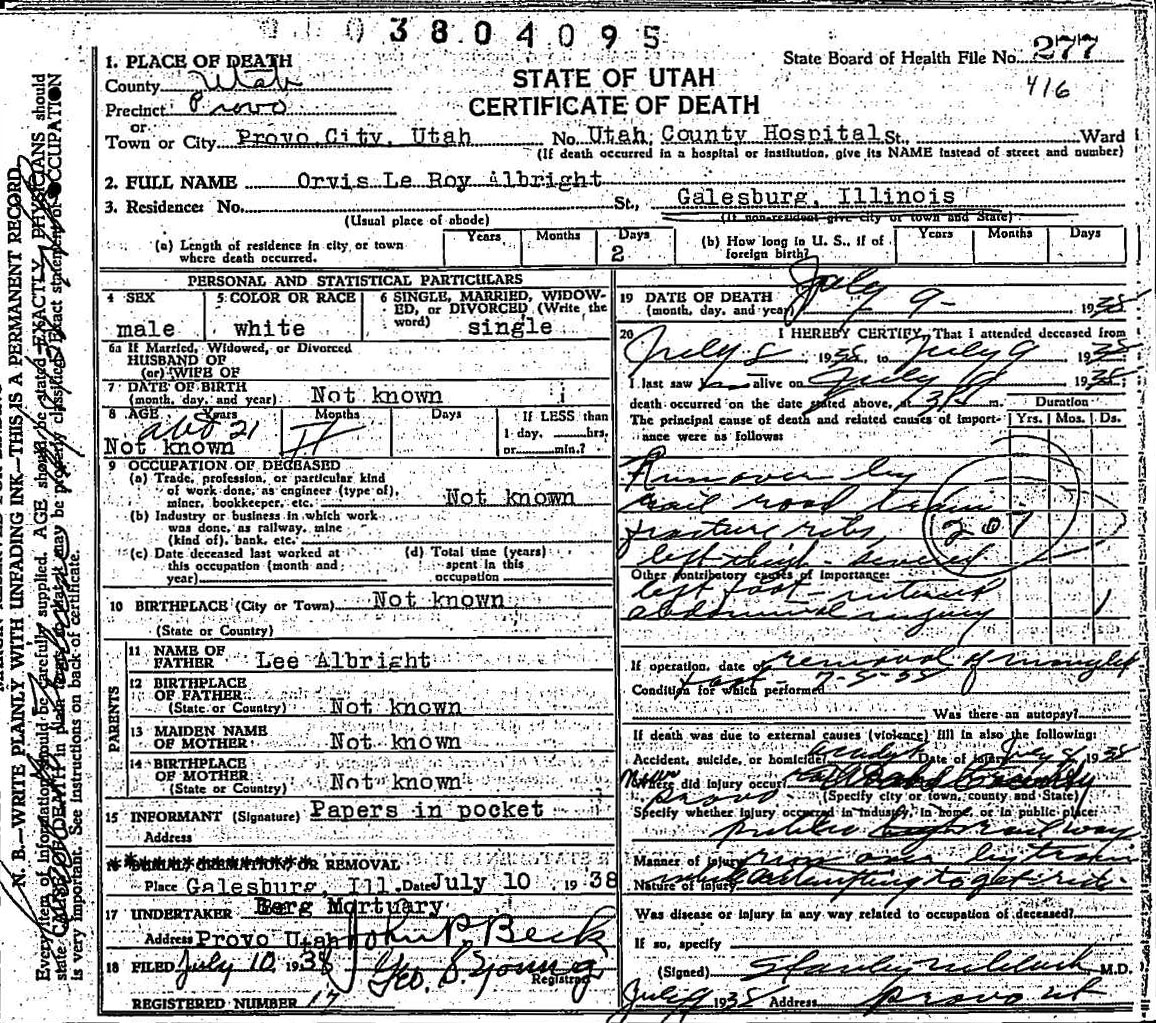 03804095
State Board of Health File No. 277
416
1. PLACE OF DEATH
County Utah
Precinct Provo
or
STATE OF UTAH
CERTIFICATE OF DEATH
Town or City Provo City, Utah No. Utah County Hospital St., Ward
(If death occurred in a hospital or institution, give its NAME instead of street and number)
2. FULL NAME Orvis Le Roy Albright
3. Residence: No. St., Galesburg, Illinois
(Usual place of abode) (If non-resident give city or town and State)
(a) Length of residence in city or town where death occurred. Years Months Days 2
(b) How long in U. S., if of foreign birth? Years Months Days
PERSONAL AND STATISTICAL PARTICULARS
4 SEX male
5 COLOR OR RACE white
6 SINGLE, MARRIED, WIDOWED, or DIVORCED (Write the word) single
6a If Married, Widowed, or Divorced
HUSBAND OF
(or) WIFE OF
7 DATE OF BIRTH
(month, day, and year) Not known
8 AGE Years Months Days If LESS than
abt 21
1 day, hrs.
Not known or min.?
9 OCCUPATION OF DECEASED
(a) Trade, profession, or particular kind
of work done, as engineer (type of),
miner, bookkeeper, etc. Not known
(b) Industry or business in which work
was done, as railway, mine
(kind of), bank, etc.
(c) Date deceased last worked at
this occupation (month and
year)
(d) Total time (years)
spent in this
occupation
10 BIRTHPLACE (City or Town) Not known
(State or Country)
PARENTS
11 NAME OF
FATHER Lee Albright
12 BIRTHPLACE
OF FATHER
(State or Country) Not known
13 MAIDEN NAME
OF MOTHER Not known
14 BIRTHPLACE
OF MOTHER
(State or Country) Not known
15 INFORMANT (Signature) Papers in pocket
Address
16 BURIAL, CREMATION, OR REMOVAL
Place Galesburg, Ill. Date July 10, 1938
17 UNDERTAKER Berg Mortuary
Address Provo Utah John P. Beck
18 FILED July 10, 1938 Geo. S. Young
Registrar
REGISTERED NUMBER 17
19 DATE OF DEATH
(month, day, and year) July 9- 1938
20 I HEREBY CERTIFY, That I attended deceased from
July 8, 1938, to July 9 1938
I last saw him alive on July 1938;
death occurred on the date stated above, at m.
Duration
The principal cause of death and related causes of importance were as follows: Yrs. Mos. Ds.
Run over by
rail road train
fracture ribs
207
left thigh - severed
Other contributory causes of importance:
left foot - internal
abdominal injury 1
If operation, date of removal of mangled
foot - 7-8-38
Condition for which performed
Was there an autopsy?
If death was due to external causes (violence) fill in also the following:
Accident, suicide, or homicide? accident Date of injury July 8, 1938
Where did injury occur?
Provo
(Specify city or town, county and State)
Specify whether injury occurred in industry, in home, or in public place:
public railway
Manner of injury run over by train
Nature of injury while attempting to get ride
Was disease or injury in any way related to occupation of deceased?
If so, specify
(Signed) Stanley M.D.
July 9 1938 Address Provo Ut
N. B.—WRITE PLAINLY WITH UNFADING INK—THIS IS A PERMANENT RECORD.
Every item of information should be carefully supplied. AGE should be stated EXACTLY. PHYSICIANS should
state CAUSE OF DEATH in plain terms, so that it may be properly classified. Exact statement of OCCUPATION
is very important. See instructions on back of certificate.